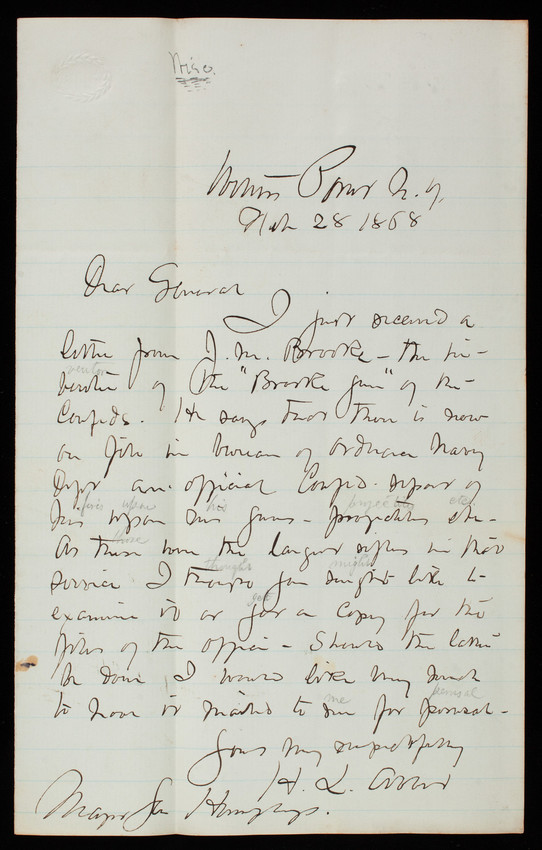 Misc.
Willets Point N.Y.
Feb 28 1868
Dear General
I just received a
letter from J. M. Brooke - the in-
ventor
ventor of the "Brooke gun" of the
Confeds. He says that there is now
on file in bureau of Ordnance Navy
Dept an official Confed. report of
fires upon his projectiles etc
his upon his guns - projectiles etc -
those
As these were the largest rifles in their
thought might
service I thought you might like to
get
examine it or get a copy for the
files of the office - Should the latter
be done I would like very much
me perusal
to have it mailed to me for perusal -
Yours very respectfully
H. L. Abbot
Major Gen Humphreys.